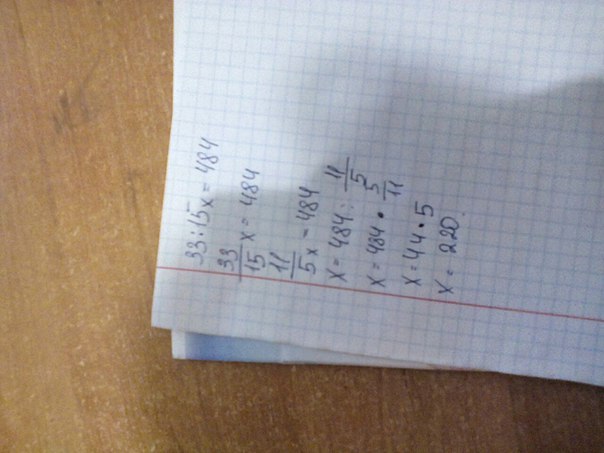 33:15x = 484
33/15 x = 484
11/5 x = 484
x = 484 : 11/5
x = 484 • 5/11
x = 44 • 5
x = 220.